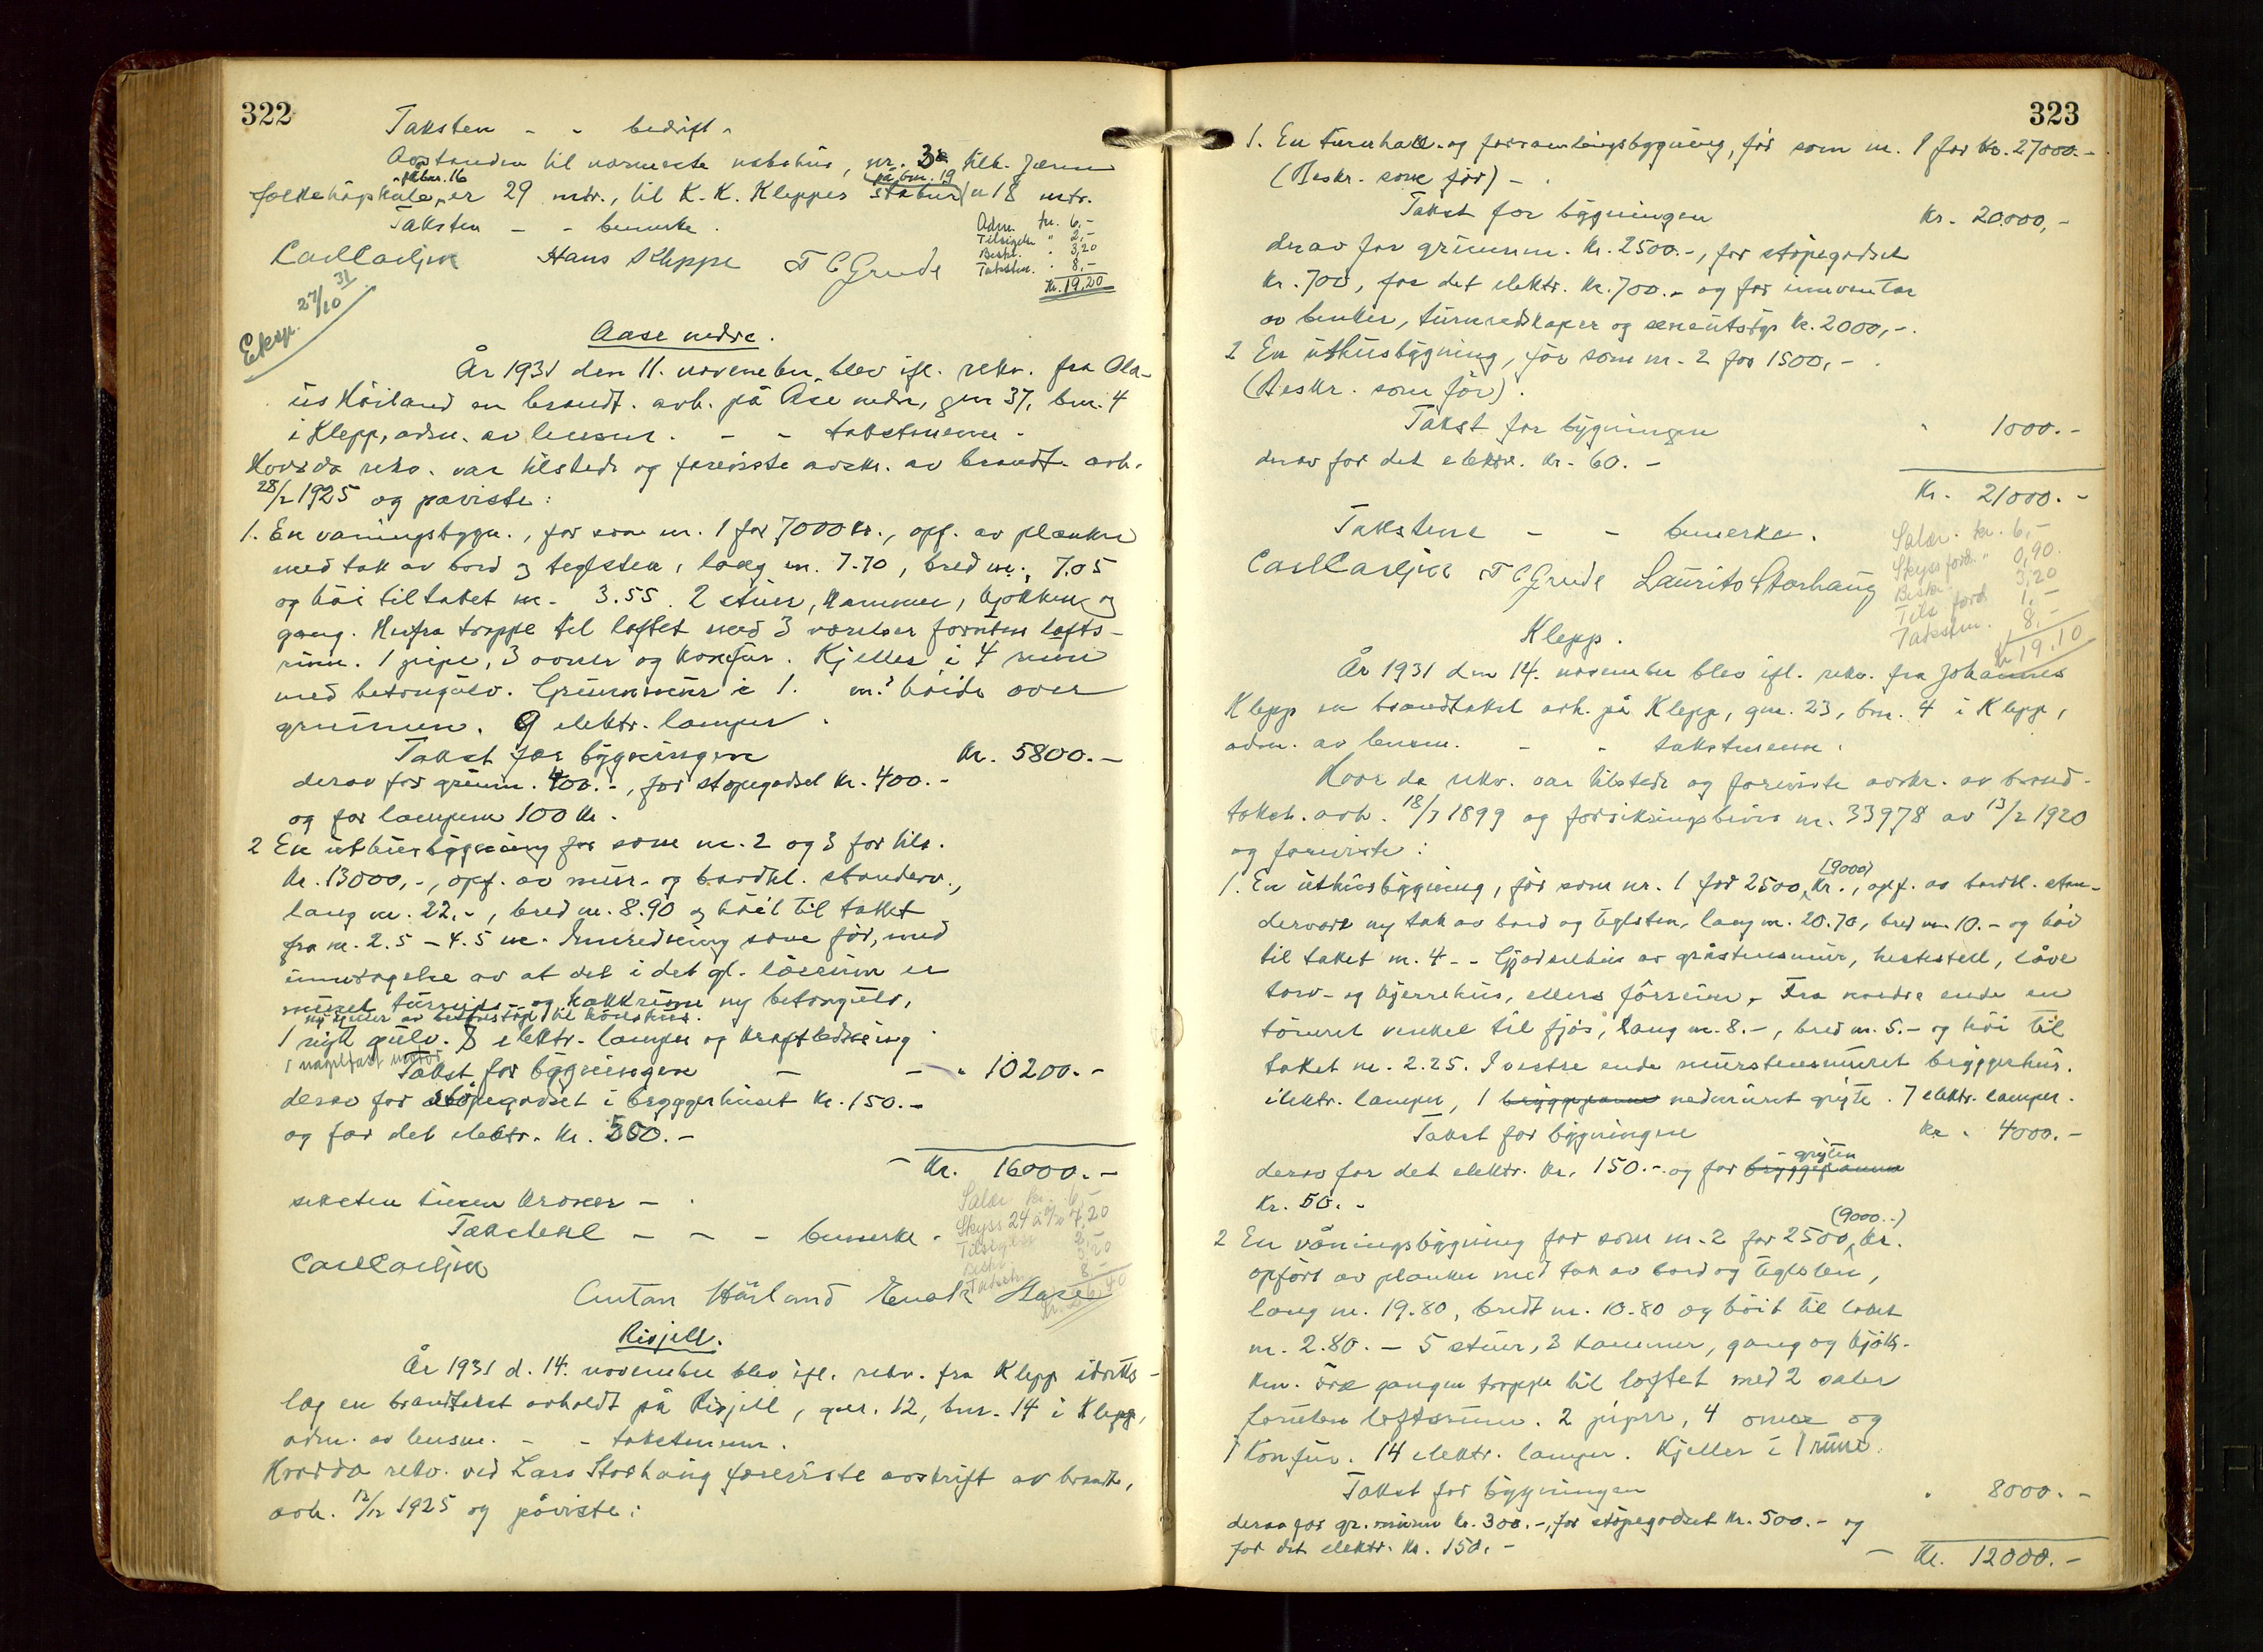 322
Taksten - - bedrift -
Avstanden til nærmeste nabohus, nr. 3 tilh. Jæren
på bnr. 16
(på bnr. 19
folkehøgskule, er 29 mtr., til K. K. Kleppes stabur) er 18 mtr.
Taksten - - bemerke.
Adm. kr. 6,-
Tilsigeln. " 2,-
Beskr. " 3,20
Takstm. " 8,-
Kr. 19,20
Carl Carljsen Hans Kleppe T C Grude
Eksp. 27/10 31
Aase nedre.
År 1931 den 11. november blev ifl. rekv. fra Ola-
us Höiland en brandt. avh. på Åse nedre, gnr 37, bnr. 4
i Klepp, adm. av lensm. - - takstmenn.
Hvor da rekv. var tilstede og foreviste avskr. av brandt. avh.
28/2 1925 og påviste:
1. En våningsbygn., før som nr. 1 for 7000 kr., opf. av planker
med tak av bord og teglsten, lang m. 7.70, bred m. 7.05
og höi til taket m. 3.55. 2 stuer, kammer, kjökken og
gang. Herfra trappe til loftet med 3 værelser foruten lofts-
rum. 1 pipe, 3 ovner og komfur. Kjeller i 4 rum
med betongulv. Grunnmur i 1. m.s höide over
grunnen. 9 elektr. lamper.
Takst for bygningen kr. 5800.-
derav for grunm. 400.-, for stöpegodset kr. 400.-
og for lampene 100 kr.
2 En uthusbygning før som nr. 2 og 3 for tils.
kr. 13000,-, opf. av mur- og bordkl. standerv.,
lang m. 22.-, bred m. 8.90 og höi til taket
fra m. 2.5 - 4.5 m. Innredning som før, med
unntagelse av at det i det gl. löerum er
muret turnips- og hakkrum ny betongulv,
ny mur av betonstöp til hönsehus.
1 nyt gulv. 8 elektr. lamper og kraftledning
1 nagelfast motor
Takst for bygningen - - " 10200.-
derav for stöpegodset i bryggerhuset kr. 150.-
og for det elektr. kr. 550.-
- Kr. 16000.-
seksten tusen kroner -
Takstene - - - bemerke.
Salær kr. 6,-
Skyss 24 7,20
Tilsigeln 2,-
Beskr. 3,20
Takstm. 8,-
Carl Carljsen
Gustav Häiland Enok Aase
Risjell.
År 1931 d. 14. november blev ifl. rekv. fra Klepp idretts-
lag en brandtakst avholdt på Risjell, gnr. 12, bnr. 14 i Klepp,
adm. av lensm. - - takstmenn.
Hvor da rekv. ved Lars Storhaug foreviste avskrift av brandt.
avh. 12/12 1925 og påviste:
323
1. En turnhall- og forsamlingsbygning, før som nr. 1 for kr. 27000.-
(Beskr. som før) -
Takst for bygningen kr. 20.000,-
derav for grunnm. kr. 2500.-, for stöpegodset
kr. 700, for det elektr. kr. 700.- og for inventar
av benker, turnredskaper og scenéutstyr kr. 2000,-.
2 En uthusbygning, før som nr. 2 for 1500,-
(Beskr. som før).
Takst for bygningen " 1000.-
derav for det elektr. kr. 60.-
Kr. 21000.-
Takstene - - bemerke.
Salær. kr. 6,-
Skyss ford. " 0,90.
Beskr. 3,20
Tils ford. 1,-
Takstm. 8,-
kr 19.10
Carl Carljsen T C Grude Laurits Storhaug
Klepp.
År 1931 den 14. november blev ifl. rekv. fra Johannes
Klepp en brandtakst avh. på Klepp, gnr. 23, bnr. 4 i Klepp,
adm. av lensm. - - takstmenn.
Hvor da rekv. var tilstede og foreviste avskr. av brand-
takst. avh. 18/7 1899 og forsikringsbevis nr. 33978 av 13/2 1920
og foreviste:
(9000)
1. En uthusbygning, før som nr. 1 for 2500 kr., opf. av bordkl. stan-
derverk ny tak av bord og teglsten, lang m. 20.70, bred m. 10.- og höi
til taket m. 4.- Gjödselhus av gråstensmur, hestestell, låve
torv- og kjerrehus, ellers fôrrum. Fra nordre ende en
töreret vinkel til fjös, lang m. 8.-, bred m. 5.- og höi til
taket m. 2.25. I vestre ende murstensmuret bryggerhus.
elektr. lamper, 1 bryggepanne nedmuret gryte. 7 elektr. lamper.
Takst for bygningen kr. 4000.-
gryten
derav for det elektr. kr. 150.- og for bryggepanna
kr. 50.-
(9000.-)
2 En våningsbygning før som nr. 2 for 2500 kr.
opført av planker med tak av bord og teglsten,
lang m. 19.80, bredt m. 10.80 og höit til taket
m. 2.80.- 5 stuer, 3 kammer, gang og kjök-
ken. Fra gangen trappe til loftet med 2 saler
foruten loftsrum. 2 piper, 4 ovner og
1 komfur. 14 elektr. lamper. Kjeller i 1 rum.
Takst for bygningen " 8000.-
derav for gr. muren kr. 300.-, for stöpegodset kr. 500.- og
for det elektr. kr. 150.-
- Kr. 12000.-